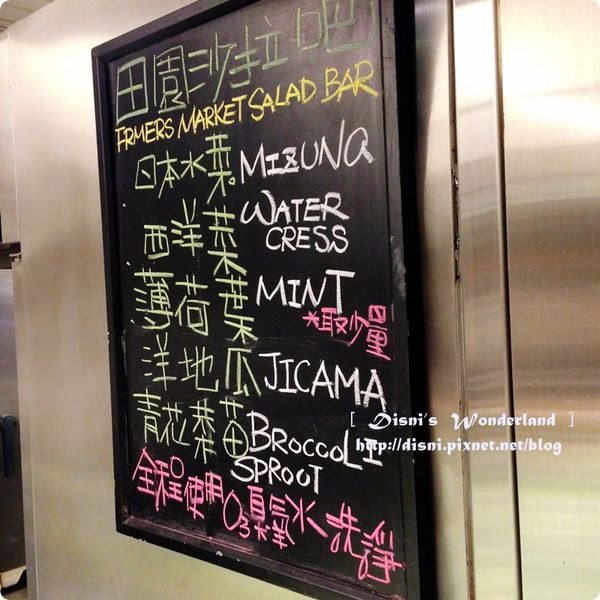 田園沙拉吧
FRMERS MARKET SALAD BAR
日本水菜 MIZUNA
西洋菜 WATER CRESS
薄荷葉 MINT
*取少量
洋地瓜 JICAMA
青花菜苗 BROCCOLI SPROOT
全程使用O3臭氧水洗淨
[ Disni's Wonderland ]
http://disni.pixnet.net/blog